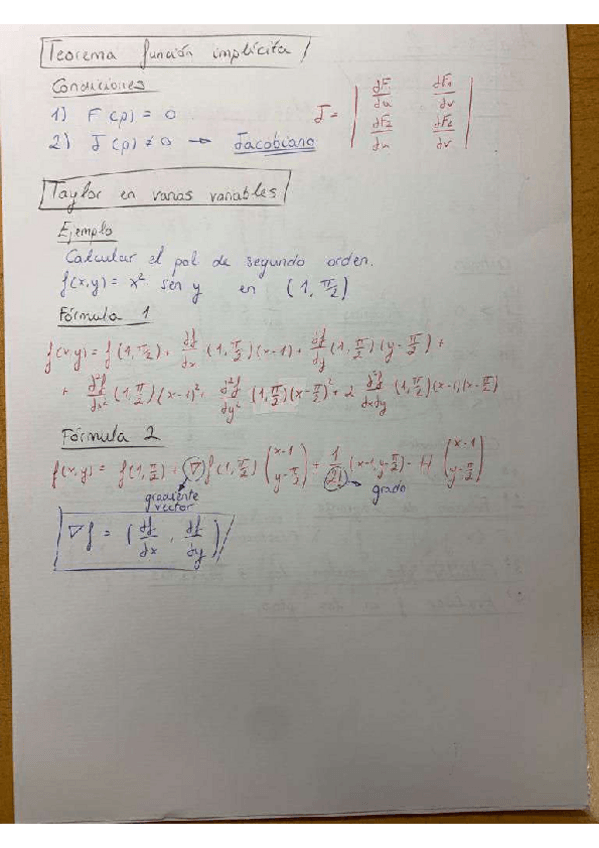 Teorema función implícita
Condiciones
1) F(p) = 0
2) J(p) ≠ 0 → Jacobiano
J = | dF1/du dF1/dv |
| dF2/du dF2/dv |
Taylor en varias variables
Ejemplo
Calcular el pol de segundo orden.
f(x,y) = x² sen y en (1, π/2)
Fórmula 1
f(x,y) = f(1, π/2) + df/dx (1, π/2)(x-1) + df/dy (1, π/2)(y-π/2) +
+ d²f/dx² (1, π/2)(x-1)² + d²f/dy² (1, π/2)(x-π/2)² + 2 d²f/dxdy (1, π/2)(x-1)(x-π/2)
Fórmula 2
f(x,y) = f(1, π/2) + ∇f(1, π/2) (x-1 y-π/2) + 1/2! (x-1, y-π/2) · H (x-1 y-π/2)
gradiente
vector
grado
∇f = (df/dx, df/dy)